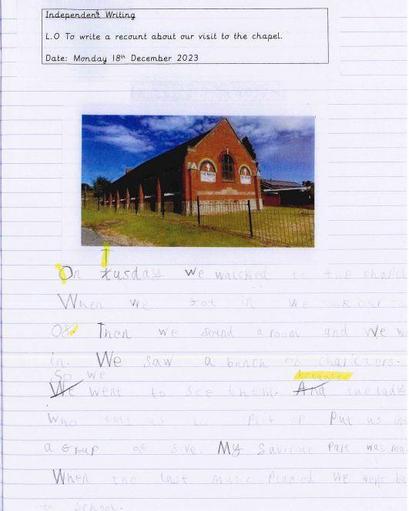 Independent Writing
L.O To write a recount about our visit to the chapel.
Date: Monday 18th December 2023
On tusday we walked to the chapel
When we got in we took our
Off Then we found a room and we w
in. We saw a bunch of
So we because
We went to see them. And the lady
Who put us in
a grup of five. My favourite part was ma
When the last music played we were
to school.